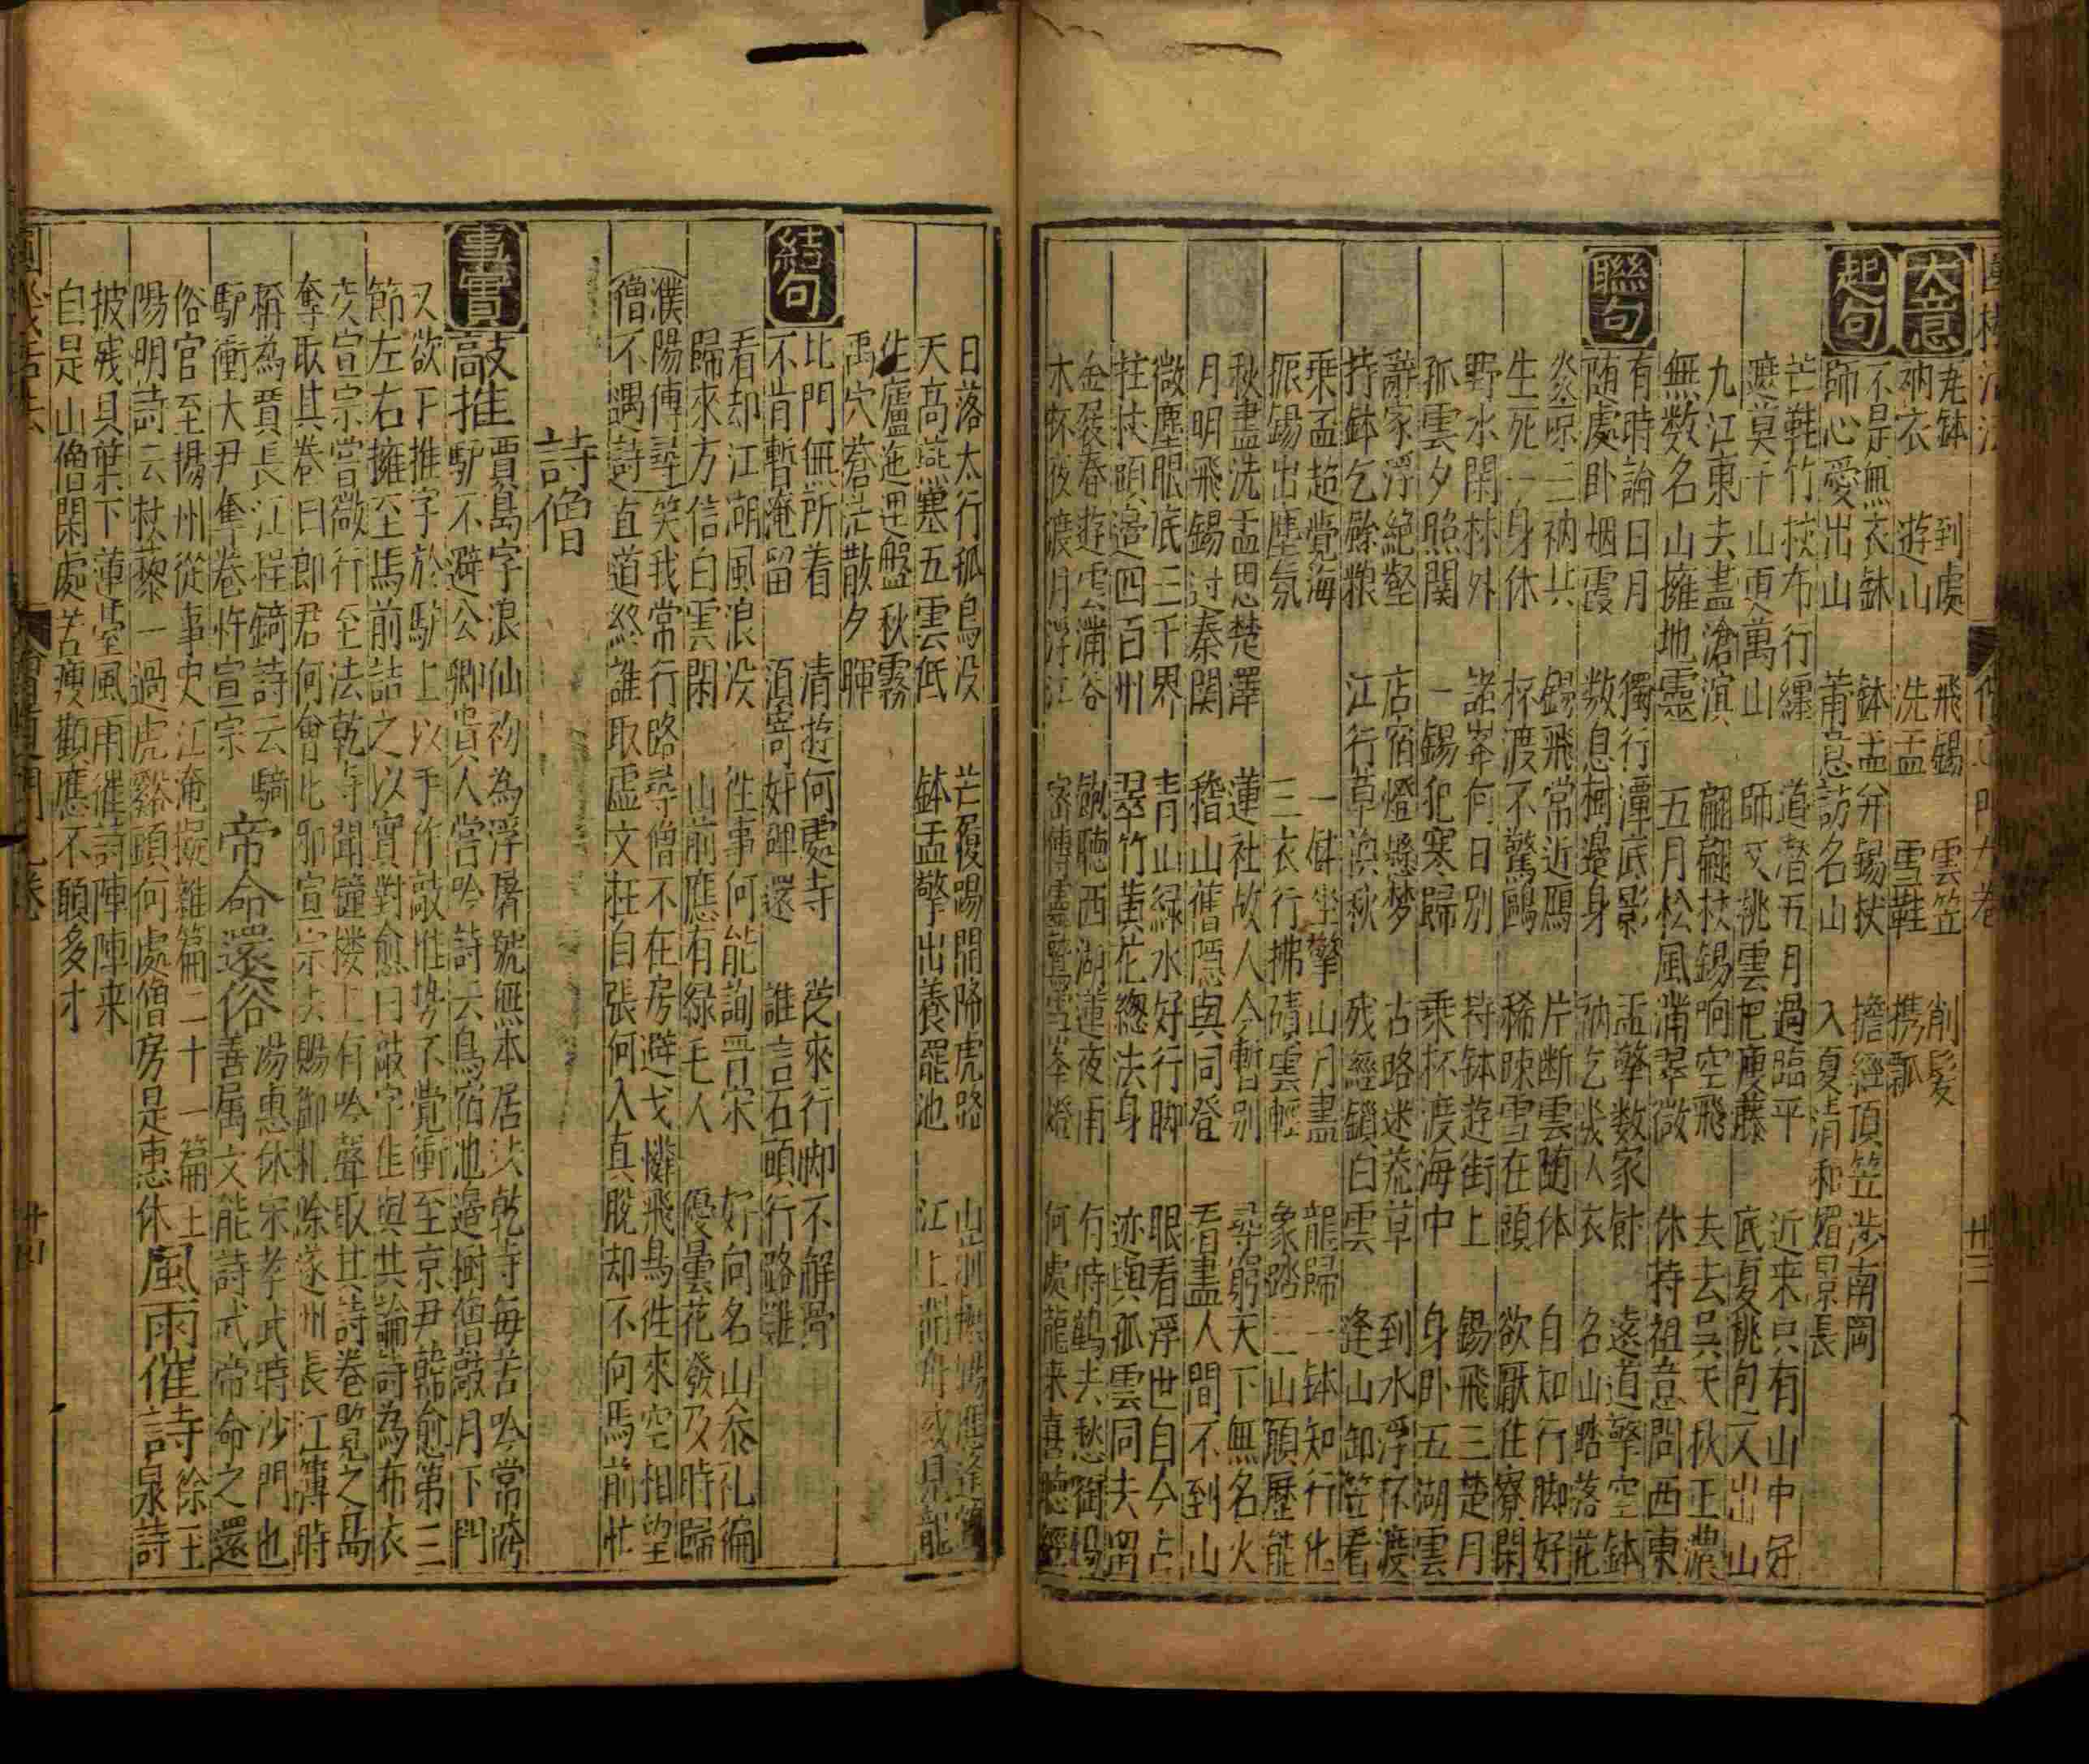 大意
瓦鉢 到處 飛錫 雲笠 削髮
衲衣 遊山 洗盂 雪鞋 携瓢
起句
不是無衣鉢 鉢盂弁錫杖 擔經頂笠涉南岡
師心愛出山 莆意訪名山 入夏清和媚景長
芒鞋竹杖布行纏 道潜五月過臨平 近来只有山中好
遮莫千山更萬山 師又挑雲把瘦藤 底夏挑包又出山
九江東去盡滄溟 翩翩杖錫响空飛 去去吳天秋正濃
無数名山擁地靈 五月松風滿翠微 休持祖意問西東
聯句
有時論日月 獨行潭底影 盂擎数家餙 遠道擎空鉢
随處卧烟霞 数息樹邉身 衲乞幾人衣 名山踏落花
炎凉三衲共 錫飛常近鴈 片断雲随体 自知行脚好
生死一身休 杯渡不驚鷗 稀踈雪在頭 欲厭住寮閑
野水閑林外 諸峯何日別 持鉢遊街上 錫飛三楚月
孤雲夕照関 一錫犯寒歸 乗杯渡海中 身卧五湖雲
辭家浮絶壑 店宿燈懸夢 占路迷荒草 到水浮杯渡
持鉢乞餘粮 江行草渙秋 残經鎖白雲 逢山卸笠看
乗盂超覺海 一鉢坐擎山月盡 龍歸一鉢知行化
振錫出塵氛 三衣行拂磧雲輕 象踏三山願歷能
秋盡洗盂思楚澤 蓮社故人今暫別 尋窮天下無名火
月明飛錫过秦関 稽山舊隱與同登 看盡人間不到山
微塵眼底三千界 青山緑水好行脚 眼看浮世自今古
拄杖頭邉四百州 翠竹黄花總法身 迹與孤雲同去留
金裟春遊雲滿谷 飽聴西湖蓮夜雨 有時鶴去愁衝錫
木杯夜渡月浮江 何處龍来喜聴經
日落太行孤鳥没 芒履踢開降虎路
天高燕塞五雲低 鉢盂擎出養龍池 江上
生廬迤邐盤秋霧
禹穴蒼茫散夕暉
結句
比門無所着 清逰何處寺 従來行脚不解骨
不肯暫淹留 須寄好碑還 誰言石頭行路難
看却江湖風浪没 徃事何能詢晋宋 好向名山叅礼徧
歸來方信白雲閑 山前應有緑毛人 優曇花發及時歸
濮陽傳尋笑我常行路尋僧不在房避戈憐飛鳥徃來空相望
僧不遇詩直道終誰取虚文枉自張何入真脫却不向馬前忙
詩僧
事實
敲推 賈島字浪仙初為浮屠號無本居法乾寺每苦吟常跨
驢不避公卿貴人嘗吟詩云鳥宿池邉樹僧敲月下門
又欲下推字於驢上以手作敲惟势不覺衝至京尹韓愈第三
節左右擁至馬前詰之以實對愈曰敲字佳與共論詩為布衣
交宣宗嘗微行至法乾寺聞鐘楼上有吟聲取其詩卷覧之島
奪取其卷曰郎君何會此耶宣宗去賜御札除遂州長江簿時
稱為賈長江程錡詩云騎
驢衝大尹奪卷忤宣宗
帝命還俗 湯惠休宋孝武時沙門也
善属文能詩武帝命之還
俗官至揚州從事史江淹擬雜篇二十一篇上
陽明詩云杖藜一過虎谿頭何處僧房是惠休
風雨催詩 徐玉
泉詩
披残貝葉下蓮堂風雨催詩陣陣来
自是山僧閑處苦瘦顴應不願多才